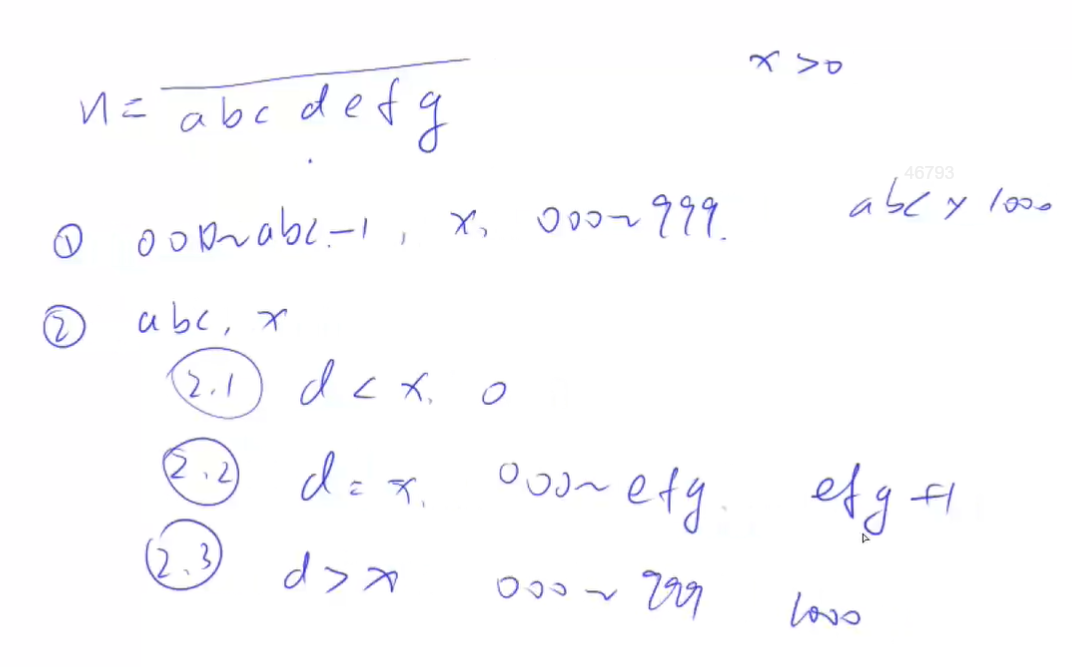 x > 0
n = abcdefg
46793
① 000~abc-1, x, 000~999. abc × 1000
② abc, x
2.1 d < x. 0
2.2 d = x. 000~efg. efg+1
2.3 d > x 000~999 1000